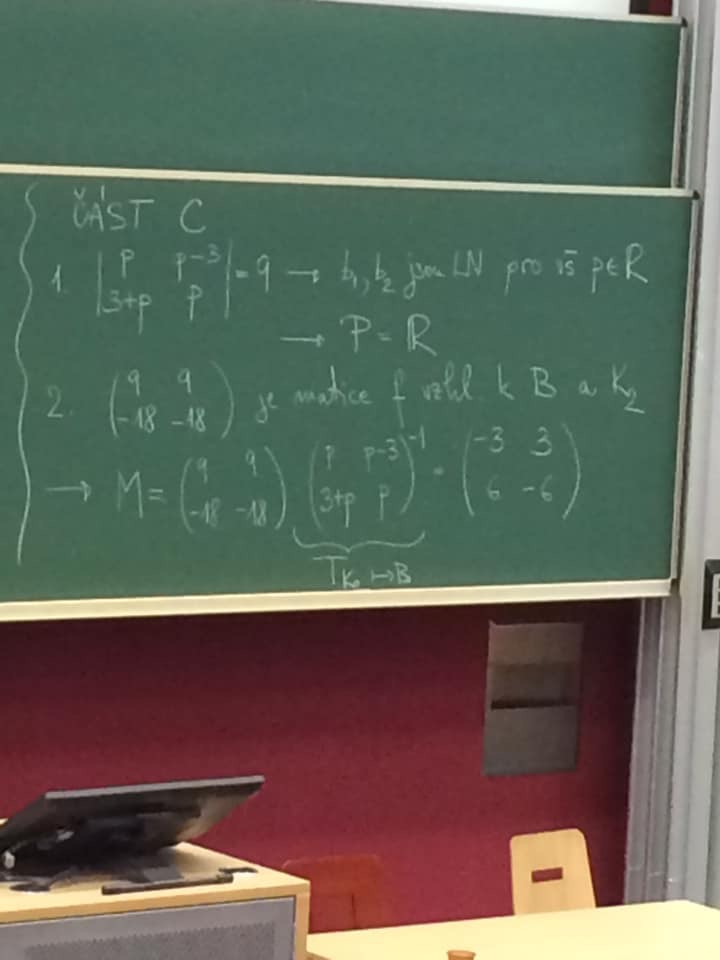 ČÁST C
1. |p p-3; 3+p p| = 9 → b₁, b₂ jsou LN pro vš p∈ℝ
→ P = ℝ
2. (9 9; -18 -18) je matice f vzhl. k B a K₂
→ M = (9 9; -18 -18) · (p p-3; 3+p p)⁻¹ = (-3 3; 6 -6)
T K₂ ↦ B